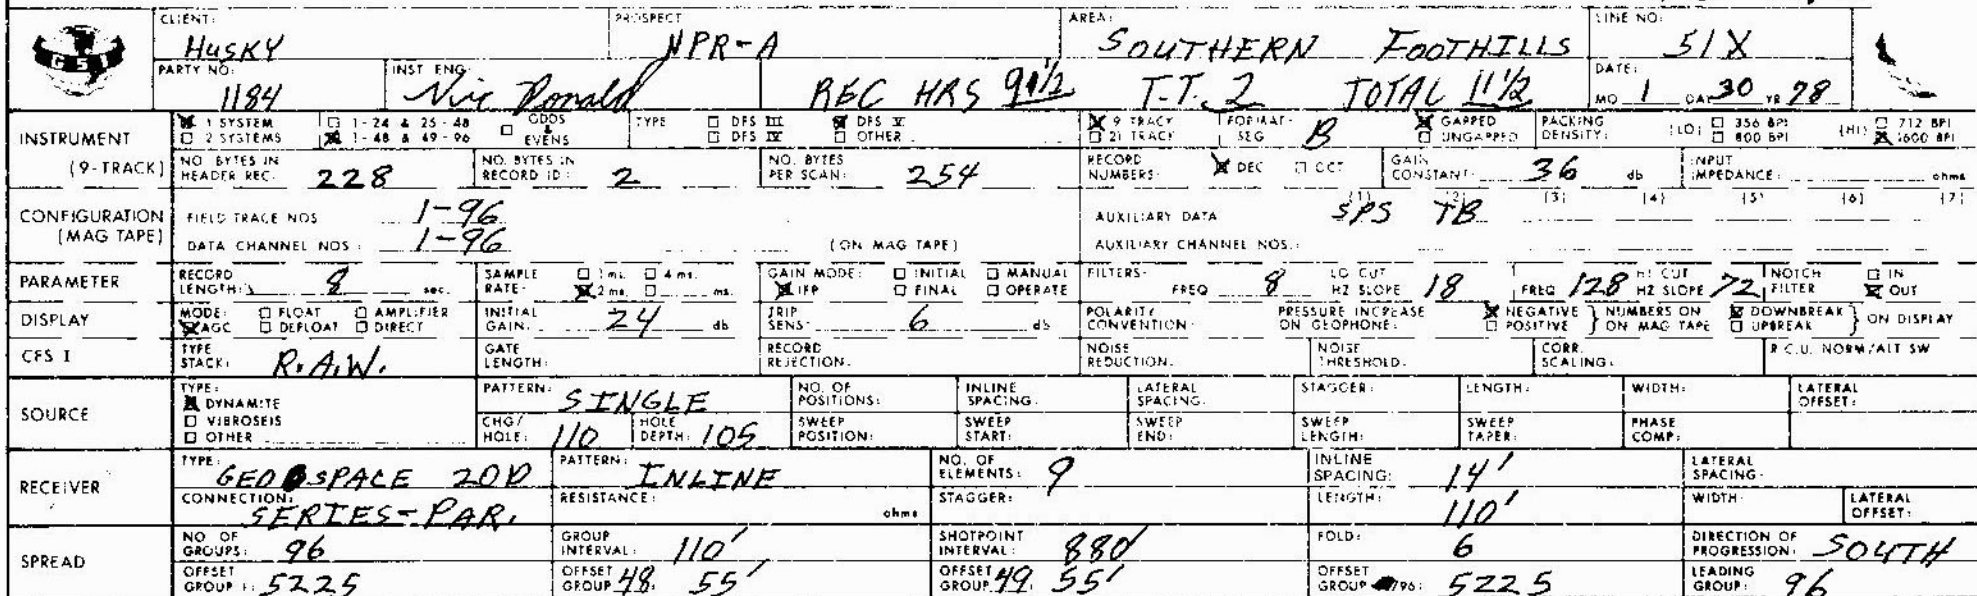 CLIENT: PROSPECT AREA: LINE NO:
HUSKY NPR-A SOUTHERN FOOTHILLS 51X
GSI
PARTY NO: INST ENG: DATE:
1184 Nic Donald REC HRS 9 1/2 T.T. 2 TOTAL 11 1/2 MO 1 DAY 30 YR 78
INSTRUMENT 1 SYSTEM 1-24 & 25-48 ODDS & EVENS TYPE DFS III DFS V 9 TRACK FORMAT: SEG B GAPPED PACKING DENSITY: (LO) 356 BPI (HI) 712 BPI
2 SYSTEMS 1-48 & 49-96 DFS IV OTHER 21 TRACK UNGAPPED 800 BPI 1600 BPI
(9-TRACK) NO. BYTES IN HEADER REC: 228 NO. BYTES IN RECORD ID: 2 NO. BYTES PER SCAN: 254 RECORD NUMBERS: DEC OCT GAIN CONSTANT: 36 db INPUT IMPEDANCE: ohms
CONFIGURATION FIELD TRACE NOS 1-96 AUXILIARY DATA (1) SPS (2) TB (3) (4) (5) (6) (7)
(MAG TAPE) DATA CHANNEL NOS: 1-96 (ON MAG TAPE) AUXILIARY CHANNEL NOS.:
PARAMETER RECORD LENGTH: 8 sec. SAMPLE RATE: 1 ms. 4 ms. 2 ms. ms. GAIN MODE: INITIAL MANUAL IFP FINAL OPERATE FILTERS: FREQ 8 LO CUT HZ SLOPE 18 FREQ 128 HI CUT HZ SLOPE 72 NOTCH FILTER IN OUT
DISPLAY MODE: FLOAT AMPLIFIER AGC DEFLOAT DIRECT INITIAL GAIN: 24 db TRIP SENS: 6 db POLARITY CONVENTION: PRESSURE INCREASE ON GEOPHONE: NEGATIVE POSITIVE } NUMBERS ON MAG TAPE DOWNBREAK UPBREAK } ON DISPLAY
CFS I TYPE STACK: R.A.W. GATE LENGTH: RECORD REJECTION: NOISE REDUCTION: NOISE THRESHOLD: CORR. SCALING: R.C.U. NORM/ALT SW
SOURCE TYPE: DYNAMITE VIBROSEIS OTHER PATTERN: SINGLE NO. OF POSITIONS: INLINE SPACING: LATERAL SPACING: STAGGER: LENGTH: WIDTH: LATERAL OFFSET:
CHG/HOLE: 110 HOLE DEPTH: 105 SWEEP POSITION: SWEEP START: SWEEP END: SWEEP LENGTH: SWEEP TAPER: PHASE COMP:
RECEIVER TYPE: GEOSPACE 20D PATTERN: INLINE NO. OF ELEMENTS: 9 INLINE SPACING: 14' LATERAL SPACING:
CONNECTION: SERIES-PAR. RESISTANCE: ohms STAGGER: LENGTH: 110' WIDTH: LATERAL OFFSET:
SPREAD NO. OF GROUPS: 96 GROUP INTERVAL: 110' SHOTPOINT INTERVAL: 880' FOLD: 6 DIRECTION OF PROGRESSION: SOUTH
OFFSET GROUP 1: 5225 OFFSET GROUP 48: 55' OFFSET GROUP 49: 55' OFFSET GROUP 96: 5225 LEADING GROUP: 96